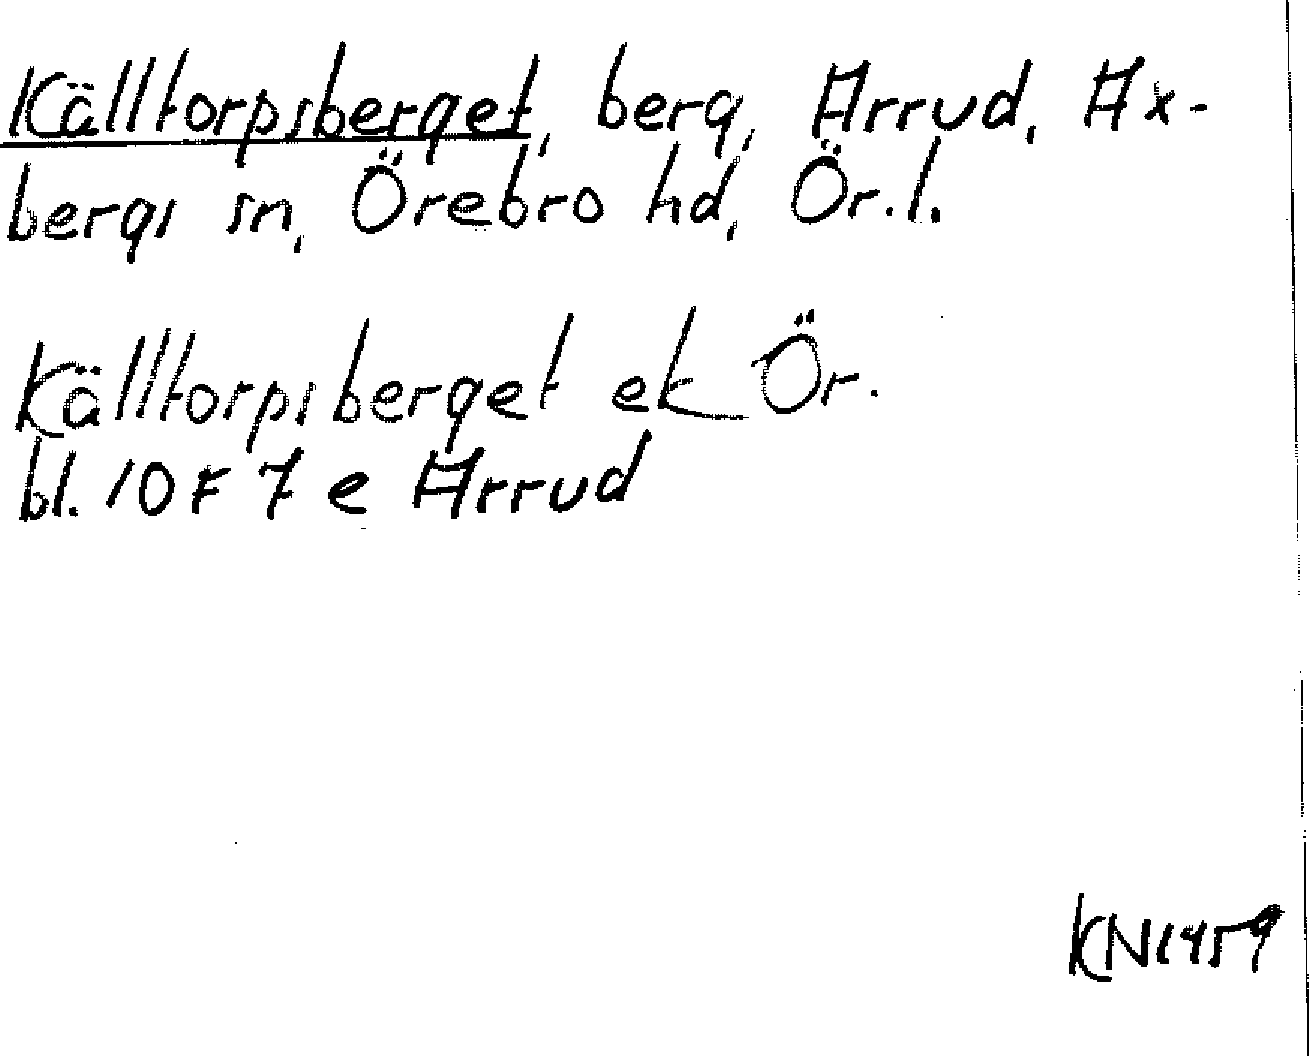 Källtorpsberget, berg, Arrud, Ax-
bergs sn, Örebro hd, Ör.l.
Källtorpsberget ek Ör.
bl. 10F 7e Arrud
KN1959